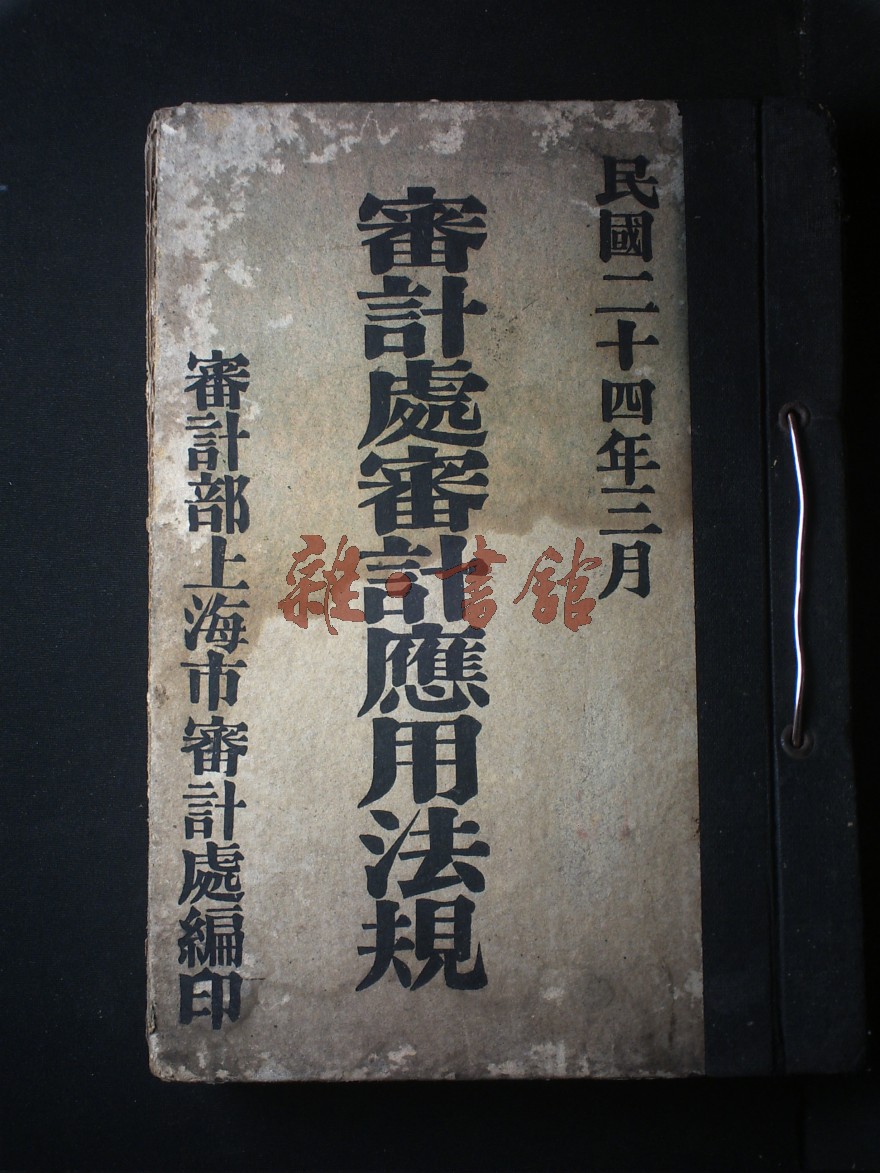 民國二十四年三月
審計處審計應用法規
審計部上海市審計處編印
雜·書館